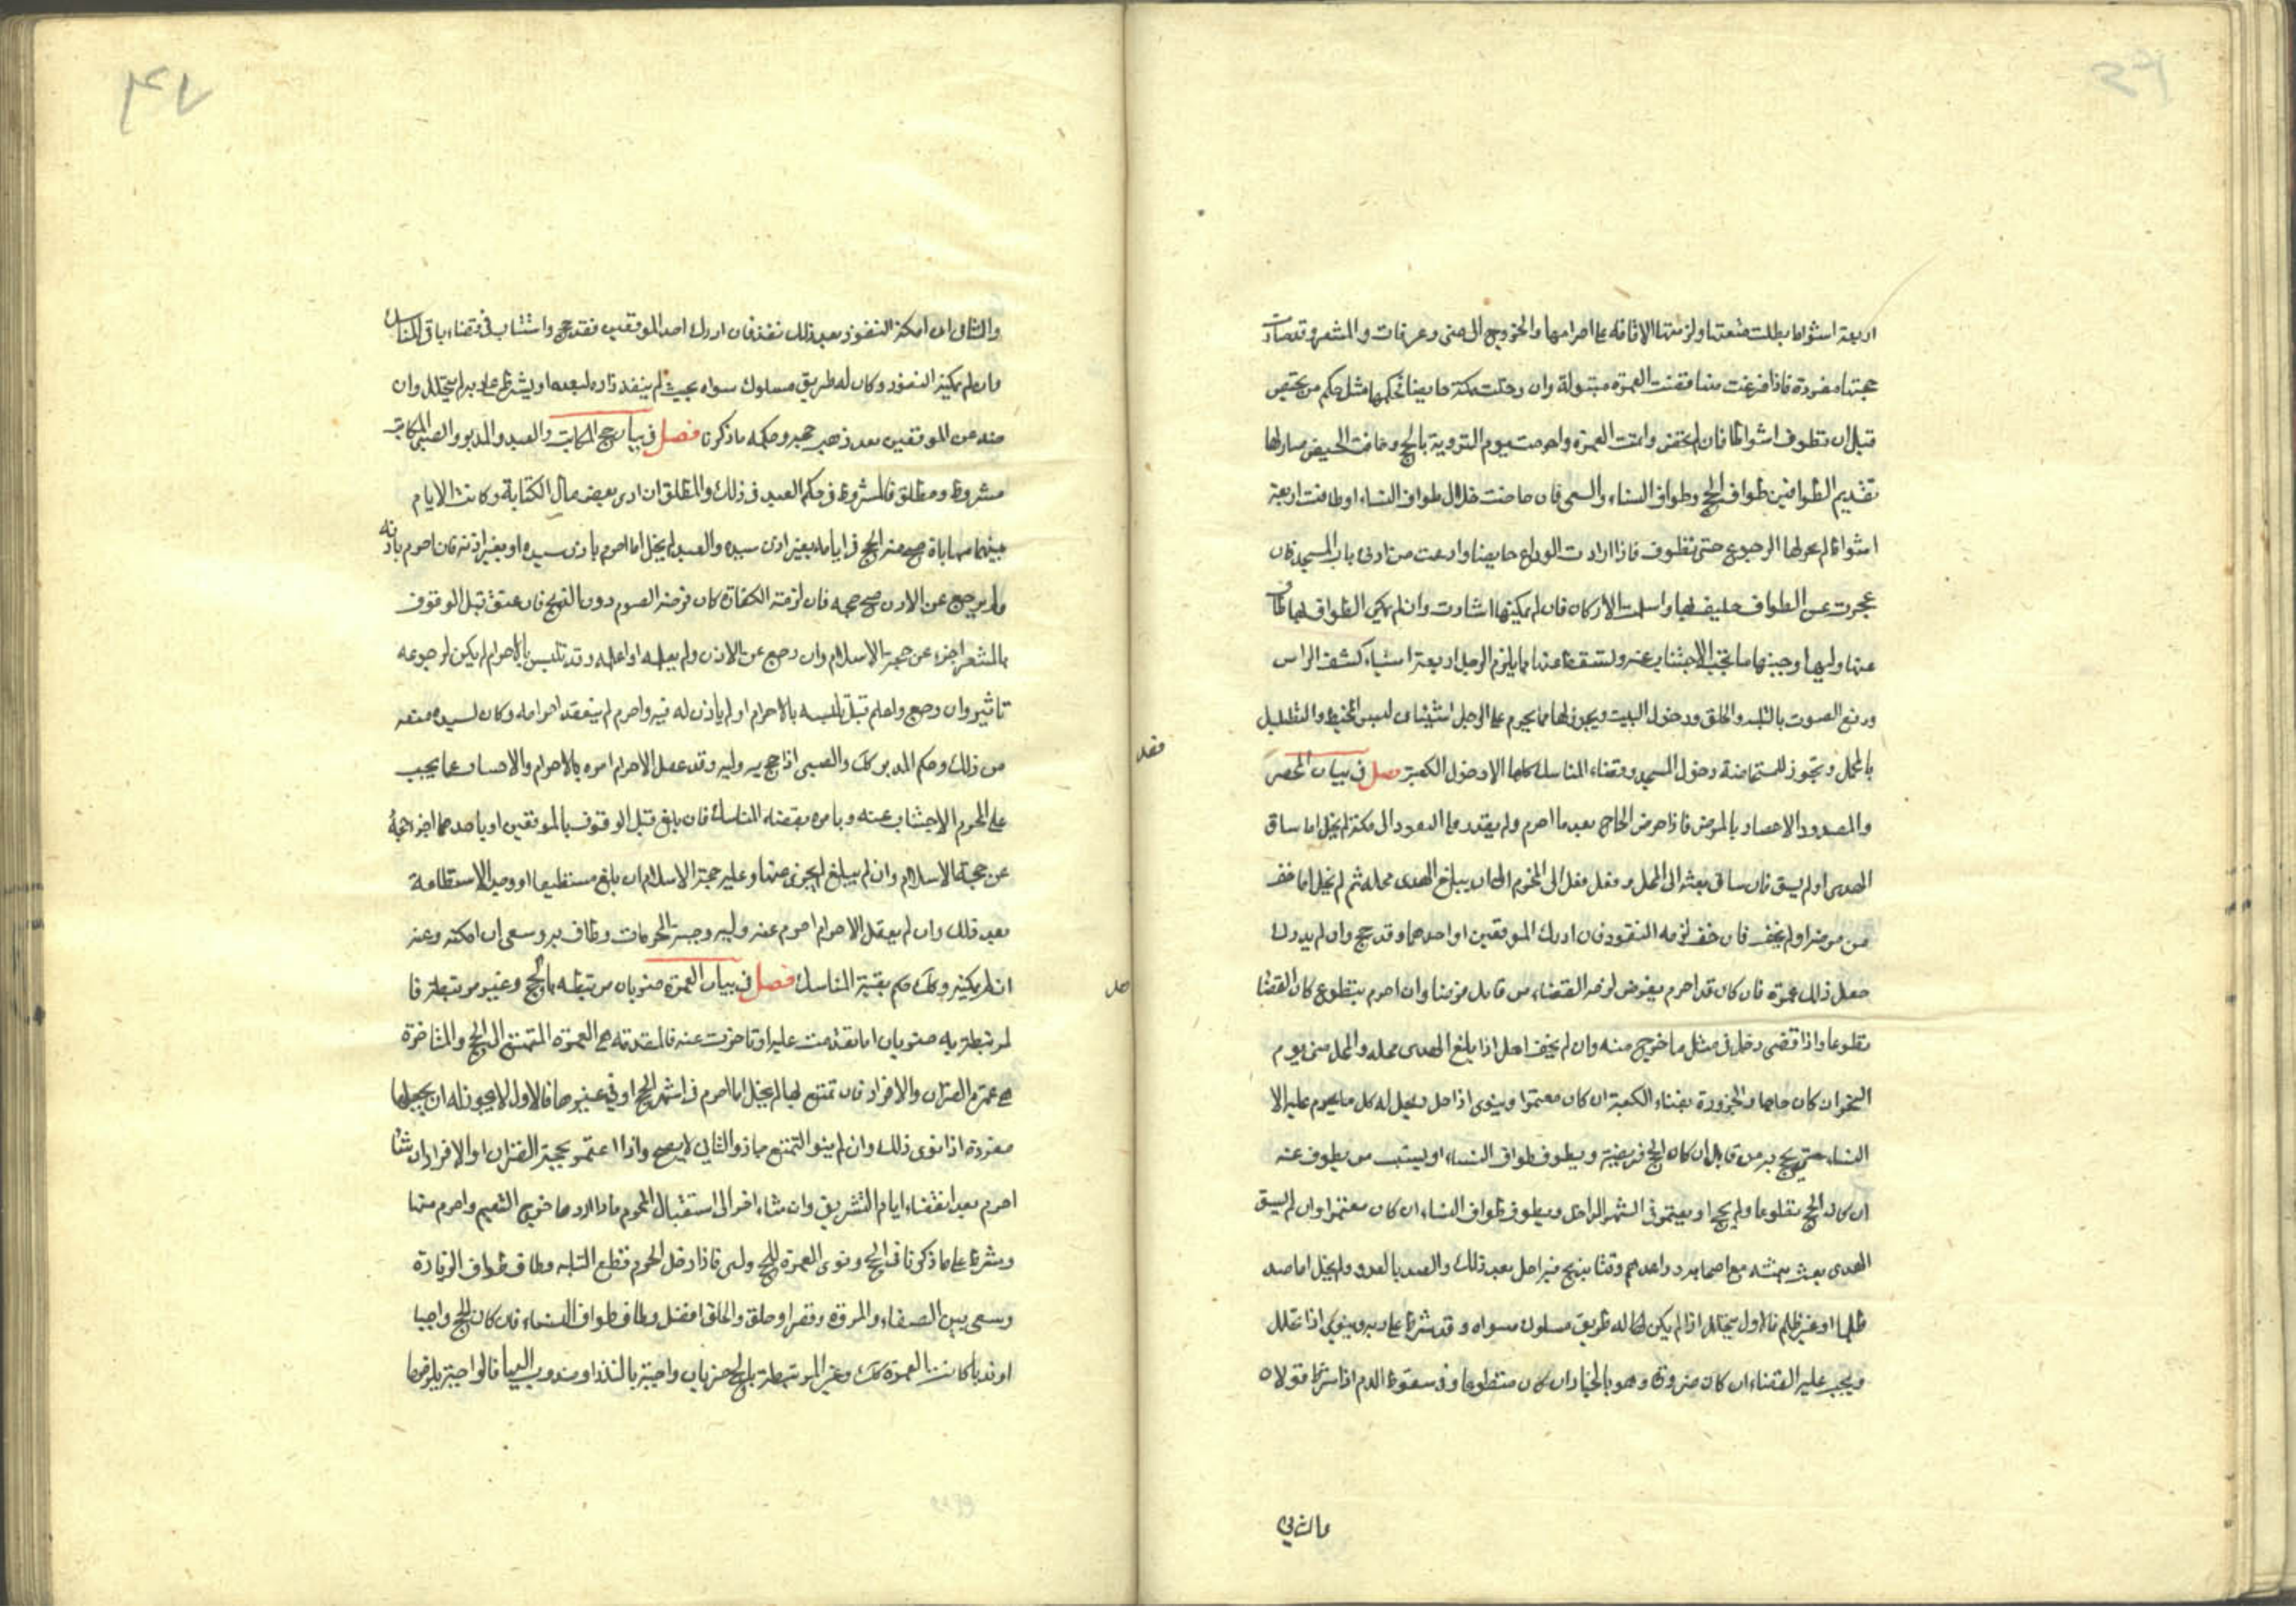 اربعة اشواط بطلت متعتها ولزمتها الاقامة على احرامها والخروج الى منى وعرفات والمشعر وقد صارت
حجتها مفردة فاذا فرغت منها قضت العمرة مبتولة وان دخلت مكة حايضا فحكمها مثل حكم من يحتض
قبل ان تطوف اشواطا فان لم تحض واتمت العمرة واحرمت يوم التروية بالحج وخافت الحيض صار لها
تقديم الطوافين طواف الحج وطواف النساء والسعي فان حاضت خلال طواف النساء او طافت اربعة
اشواط لم يجز لها الرجوع حتى تطوف فاذا ارادت الوداع حايضا وادعت من ادنى باب المسجد فان
عجزت عن الطواف طيف بها واستلمت الاركان فان لم يمكنها اشارت وان لم يمكن الطواف بها طاف
عنها وليها وجنبها ما تجب الاجتناب عنه ولتسقط عنها مما يلزم الرجل اربعة اشياء كشف الراس
ورفع الصوت بالتلبية والحلق ودخول البيت ويجوز لها مما يحرم على الرجل اشياء لبس المخيط والتظليل
بالمحمل وتجوز للمستحاضة دخول المسجد وقضاء المناسك كلها الا دخول الكعبة فصل في بيان المحصر
والمصدود الاحصار بالمرض فاذا مرض الحاج بعد ما احرم ولم يقدر على النفوذ الى مكة لم يخل اما ساق
الهدى او لم يسق فان ساق بعثه الى المحل و الى المحرم الى ان يبلغ الهدى محله ثم لم يخل اما خف
من مرضه او لم يخف فان خف لزمه النفوذ فان ادرك الموقفين او احدهما وقد حج وان لم يدرك
جعل ذلك عمرة فان كان قد احرم بفرض لزمه القضاء من قابل فرضا وان احرم بتطوع كان القضا
تطوعا واذا قضى دخل في مثل ما خرج منه وان لم يخف احل اذا بلغ الهدى محله والمحل منى يوم
النحر ان كان حاجا و الحزورة بفناء الكعبة ان كان معتمرا وينوى اذا حل ويحل له كل ما يحرم عليه الا
النساء حتى يحج به من قابل ان كان الحج فريضة ويطوف طواف النساء او يستنيب من يطوف عنه
ان كان الحج تطوعا ولم يحج او يعتمر في الشهر الداخل ويطوف طواف النساء ان كان معتمرا وان لم يسق
الهدى بعث بثمنه مع اصحابه وواعدهم وقتا يذبح فيه احل بعد ذلك والصد بالعدو ولم يخل اما صد
ظلما او غير ظلم فالاول يتحلل اذا لم يكن له طريق مسلوك سواه وقد شرط على ربه وينوى اذا تحلل
ويجب عليه القضاء ان كان صرورة وهو بالخيار ان كان متطوعا وفي سقوط الدم اذا شرط قولان
والثاني
والثاني ان امكنه النفوذ بعد ذلك نفذ فان ادرك احد الموقفين فقد حج واستناب في قضاء باقي المناسك
فان لم يمكنه النفوذ وكان له طريق مسلوك سواه بحيث لم ينفد زاده لبعده او يشترط على ربه لم يتحلل وان
صد عن الموقفين بعد ذهب حجه وحكمه ما ذكرنا فصل في بيان حج المكاتب والعبد والمدبر والصبي المكاتب
مشروط ومطلق فالمشروط في حكم العبد في ذلك والمطلق ان ادى بعض مال الكتابة وكانت الايام
بينهما مهاياة صح منه الحج في ايامه بغير اذن سيده والعبد لم يخل اما احرم باذن سيده او بغير اذنه فان احرم باذنه
ولم يرجع عن الاذن صح حجه فان لزمته الكفارة كان فرضه الصوم دون الذبح فان عتق قبل الوقوف
بالمشعر اجزء عن حجة الاسلام وان رجع عن الاذن ولم يعلمه او اعلمه وقد تلبس بالاحرام لم يكن لرجوعه
تاثير وان رجع واعلم قبل تلبسه بالاحرام او لم ياذن له فيه واحرم لم ينعقد احرامه وكان لسيده منعه
من ذلك وحكم المدبر كك والصبي اذا حج به وليه وقد عقل الاحرام امره بالاحرام والامساك عما يجب
على المحرم الاجتناب عنه وبامره بقضاء المناسك فان بلغ قبل الوقوف بالموقفين او باحدهما اجزء حجه
عن حجة الاسلام وان لم يبلغ لم يجز عنها وعليه حجة الاسلام ان بلغ مستطيعا او وجد الاستطاعة
بعد ذلك وان لم يعقل الاحرام احرم عنه وليه وجنبه المحرمات وطاف به وسعى ان امكنه وعنه
ان لم يمكنه وكك حكم بقية المناسك فصل في بيان العمرة ضربان مرتبطة بالحج وغير مرتبطة فا
لمرتبطة به ضربان اما تقدمت عليه او تاخرت عنه فالمقدمة هي العمرة المتمتع الى الحج والمتاخرة
هي عمرة القران والافراد فان تمتع بها لم يخل اما احرم في اشهر الحج او في غيرها فالاول لا يجوز له ان يجعلها
مفردة اذا نوى ذلك وان لم ينو التمتع جاز والثاني لا يصح واذا اعتمر بحجة القران او الافراد ان شا
احرم بعد انقضاء ايام التشريق وان شاء اخر الى استقبال المحرم فاذا ارادها خرج التنعيم واحرم منها
وشرط على ما ذكرنا في الحج ونوى العمرة للحج ولبى فاذا دخل الحرم قطع التلبية وطاف طواف الزيارة
وسعى بين الصفاء والمروة وقصر او حلق والحلق افضل وطاف طواف النساء فان كان الحج واجبا
او ندبا كانت العمرة كك وغير المرتبطة بالحج ضربان واجبة بالنذر او مندوب اليها فالواجبة يلزمها